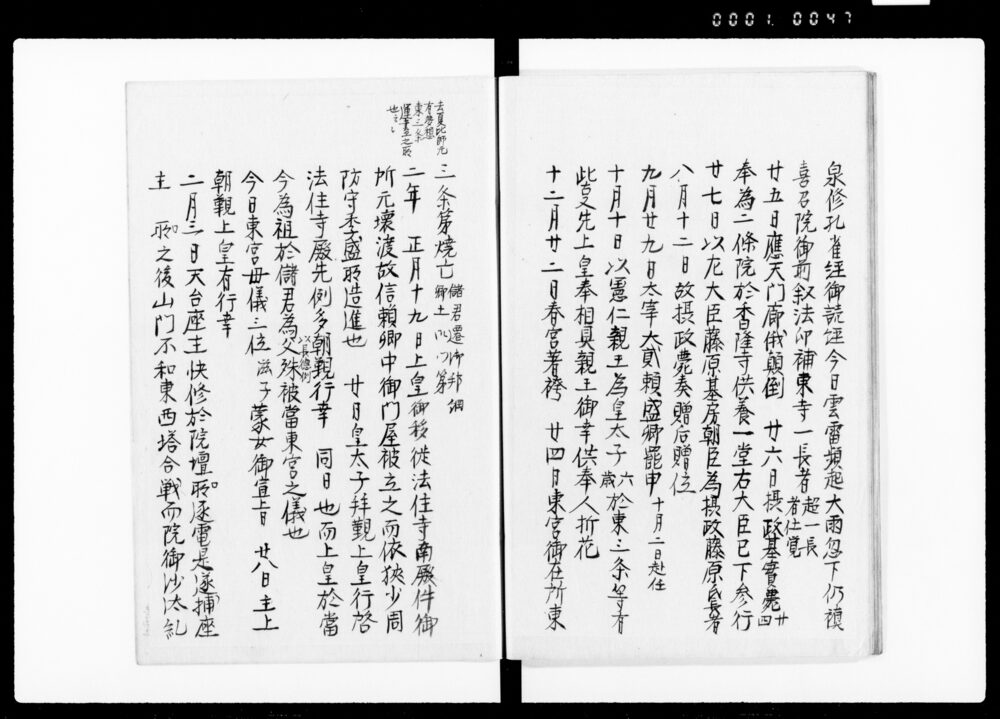 0001 0047
泉修孔雀経御読経今日雲雷頻起大雨忽下仍禎
喜召院御前叙法印補東寺一長者超一長者仕覚
廿五日應天門廊俄顛倒 廿六日摂政基實薨廿四
奉為二條院於香隆寺供養一堂右大臣已下参行
廿七日以左大臣藤原基房朝臣為摂政藤原氏長者
八月十二日故摂政薨奏贈后贈位
九月廿九日太宰大貳頼盛卿罷申十月二日赴任
十月十日以憲仁親王為皇太子六歳於東三条等有
此叓先上皇奉相具親王御幸供奉人折花
十二月廿二日春宮著袴 廿四日東宮御在所東
去夏比師元
有夢想
東三条
也云々
三条第焼亡儲君遷御邦綱卿土
二年 正月十九日上皇御移徙法住寺南殿件御
所元壞渡故信頼卿中御門屋被立之而依狹少周
防守季盛所造進也 廿日皇太子拜覲上皇行啓
法住寺殿先例多朝覲行幸以長徳例 同日也而上皇於當
今為祖於儲君為父殊被當東宮之儀也
今日東宮母儀三位滋子蒙女御宣旨 廿八日主上
朝覲上皇有行幸
二月三日天台座主快修於院壇所逐電是遂捕座
主 之後山門不和東西塔合戦而院御沙汰糺